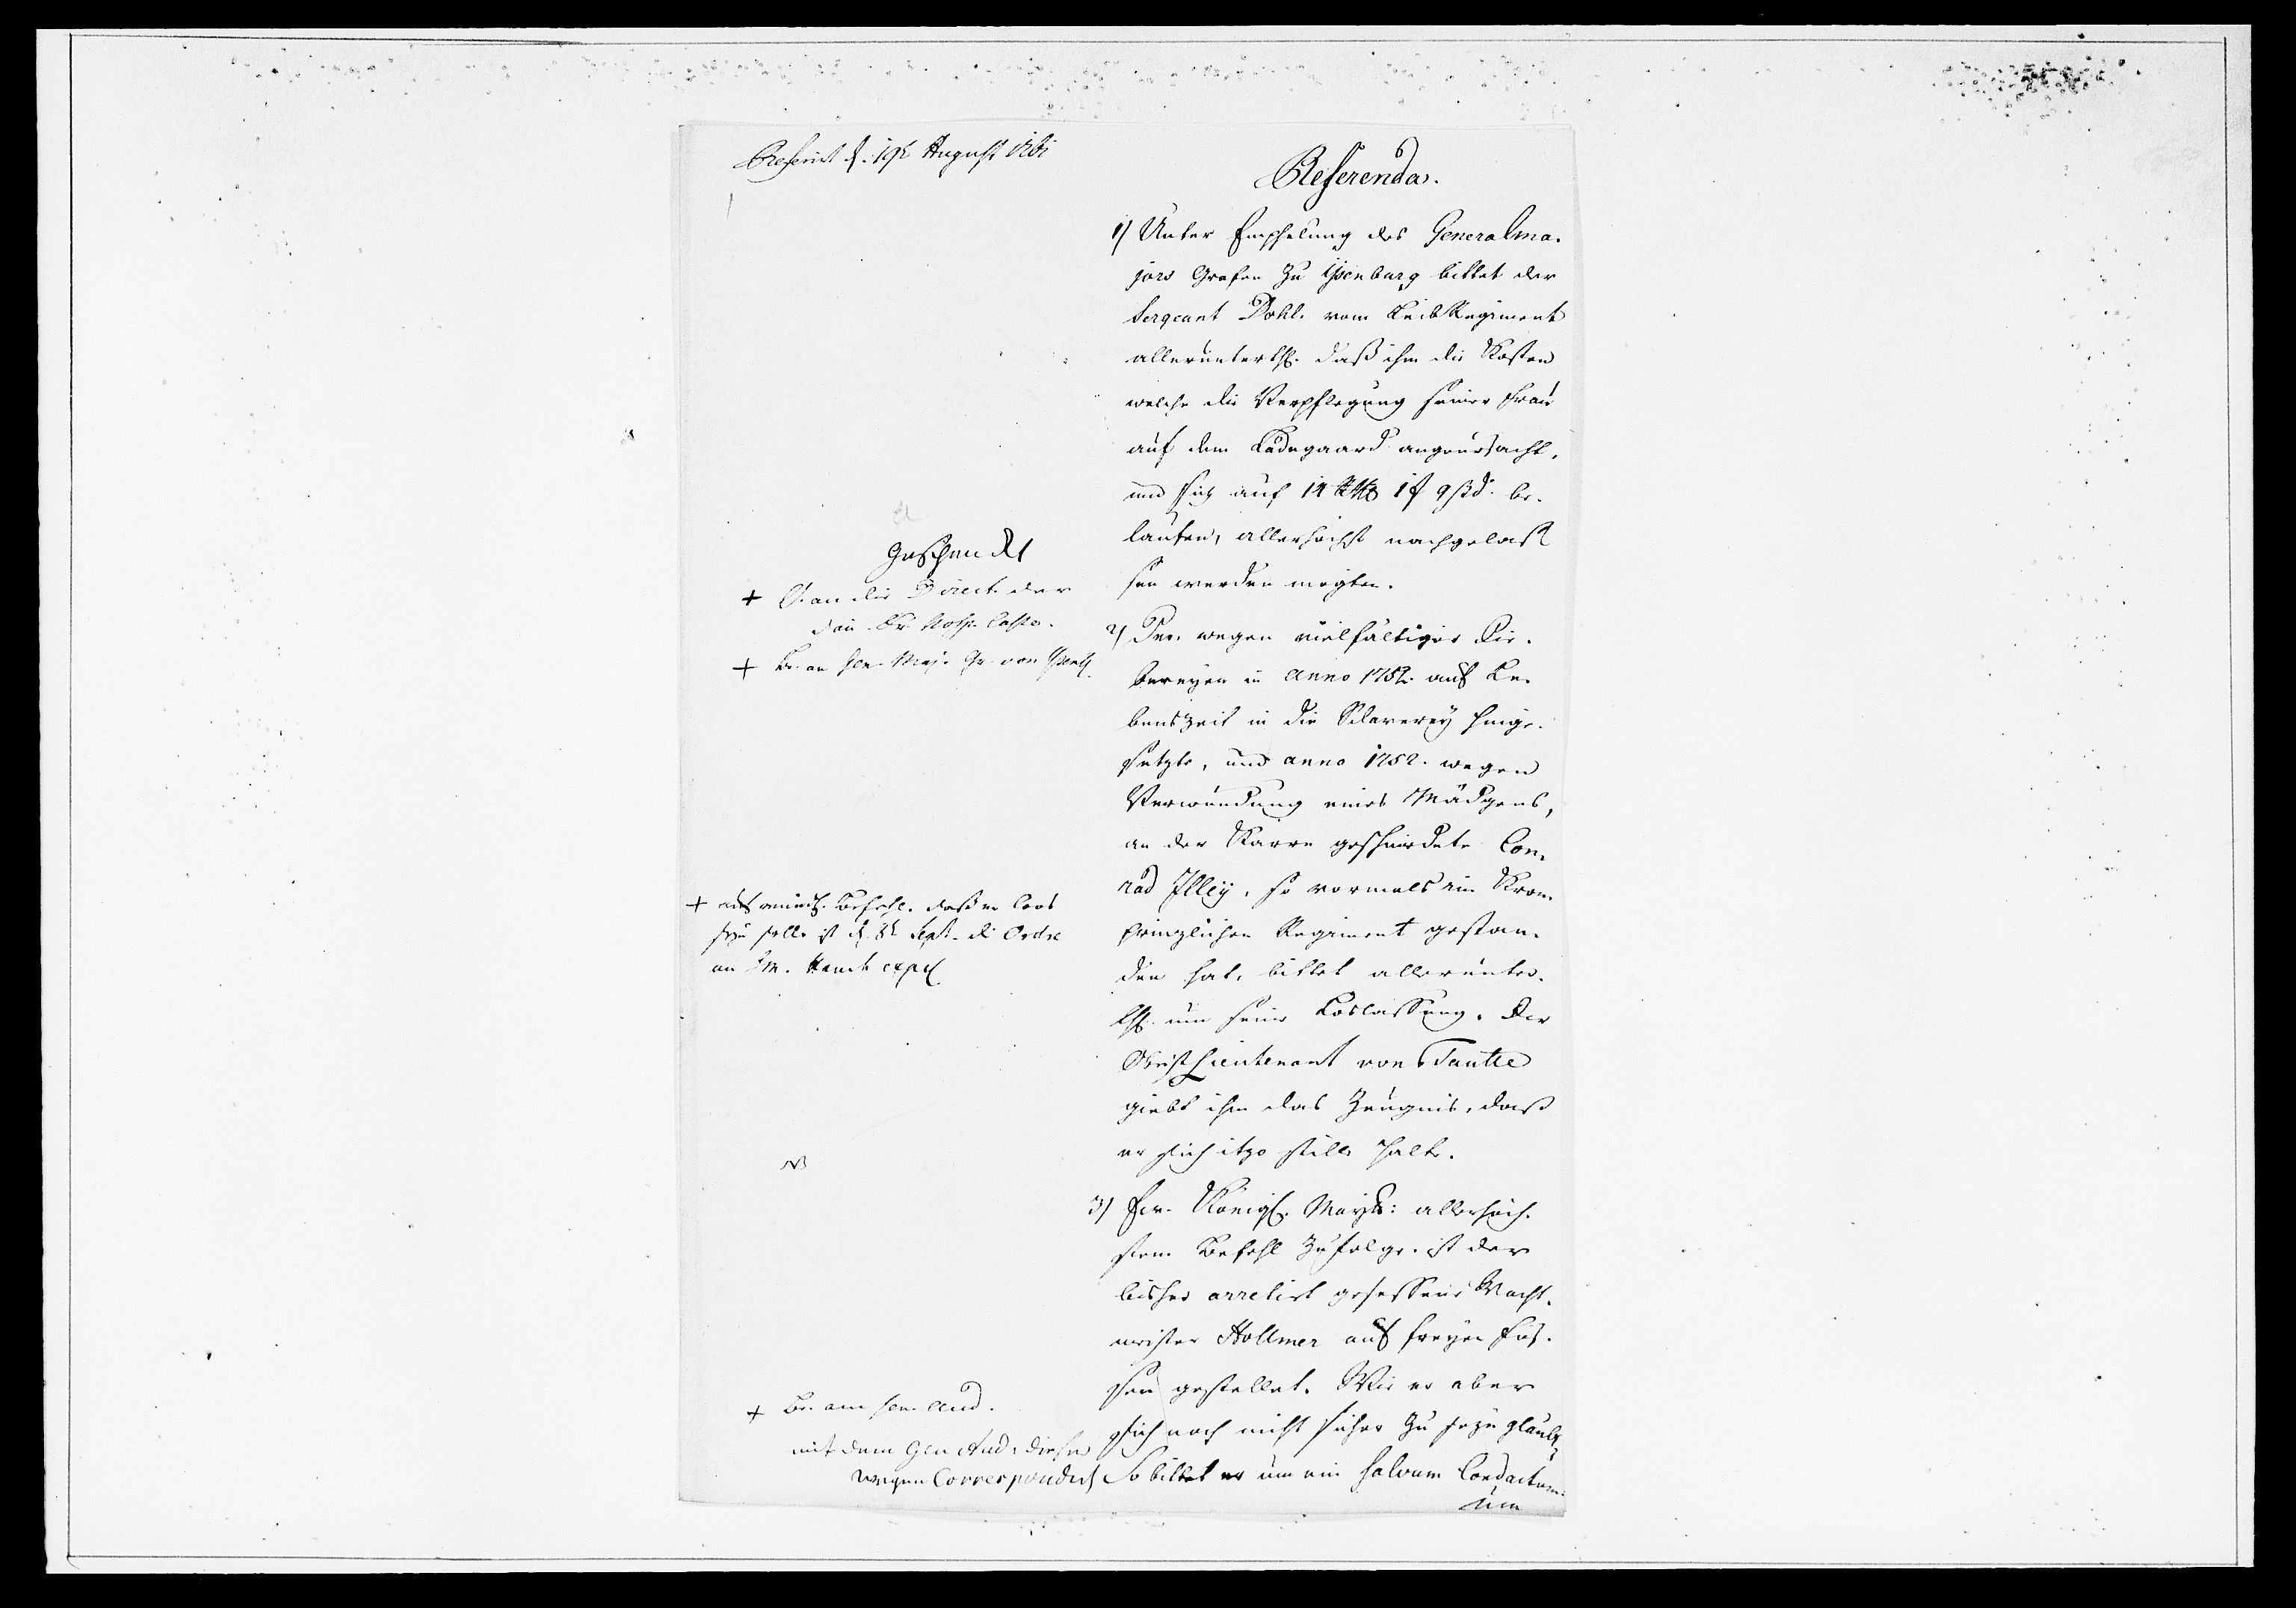 Referirt d. 19t August 1761
Referenda.
1) Unter Empfelung des Generalma-
jors Grafen zu Ysenburg bittet der
Sergeant Dohl. vom Leib Regiment
allerunterth. daß ihm die Kosten
welche die Verpflegung seiner Frau
auf dem Ladegaard angeursacht,
und sich auf 14 Rthlr 1 ₰ 9 ßd. be-
laufen, allerhöchst nachgelas-
sen werden mögten.
Geschenckt
+ an die Direct. der
Hosp. Casse.
+ Br. an Gen. Maj. Gr. von Ysenb.
2) Der wegen vielfältiger Die-
bereyen in anno 1752. auf Le-
benszeit in die Sclaverey hinge-
setzte, und anno 1752. wegen
Verwundung eines Mädgens,
an der Karre geschmiedete Con-
rad Illey, so vormals im Kron-
prinzlichen Regiment gestan-
den hat, bittet allerunter-
th. um seine Loslassung. Der
Obrist Lieutenant von Tantte
giebt ihm das Zeugnis, daß
er sich itzo stille halte.
+ auf mündl. Befehl. daß er loos
seyn solle ist d. 8t Sept. die Ordre
an GM. Hauch exped.
NB
3) Ihr. Königl. Mayst: allerhöch-
stem Befehl zufolge ist der
bisher arretirt gesessene Wacht-
meister Hollmer auf freyen Füs-
sen gestellet. Wie er aber
sich noch nicht sicher zu seyn glaubt,
So bittet er um ein salvum Conductum.
um
+ Br. am Gen. Aud.
mit dem Gen Aud: dieser
wegen Correspondirt